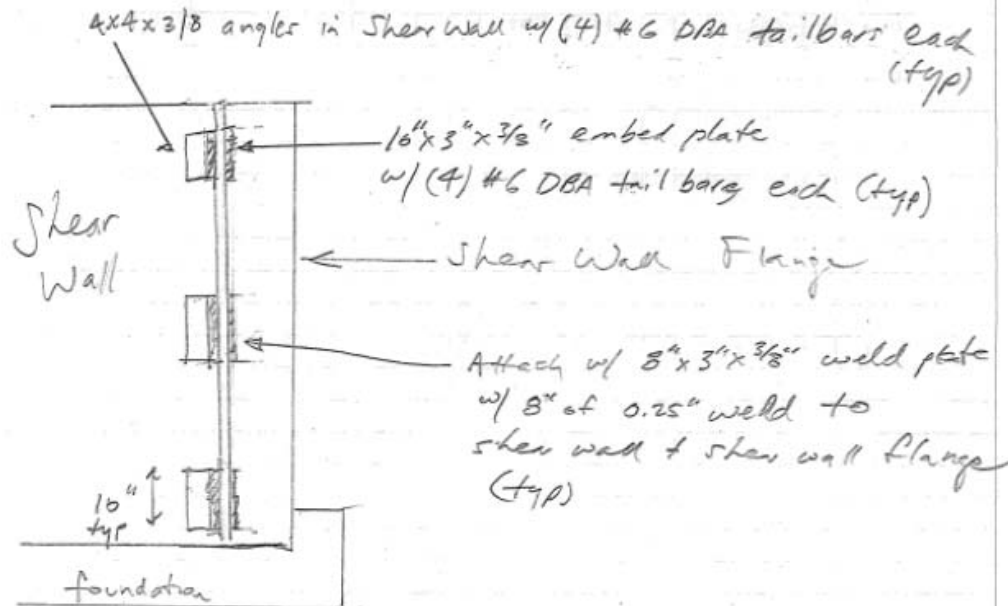 4x4x3/8 angles in Shear Wall w/(4) #6 DBA tailbars each
(typ)
10"x3"x3/8" embed plate
w/(4) #6 DBA tailbars each (typ)
Shear
Wall
Shear Wall Flange
Attach w/ 8"x3"x3/8" weld plate
w/ 8" of 0.25" weld to
shear wall + shear wall flange
(typ)
10"
typ
foundation